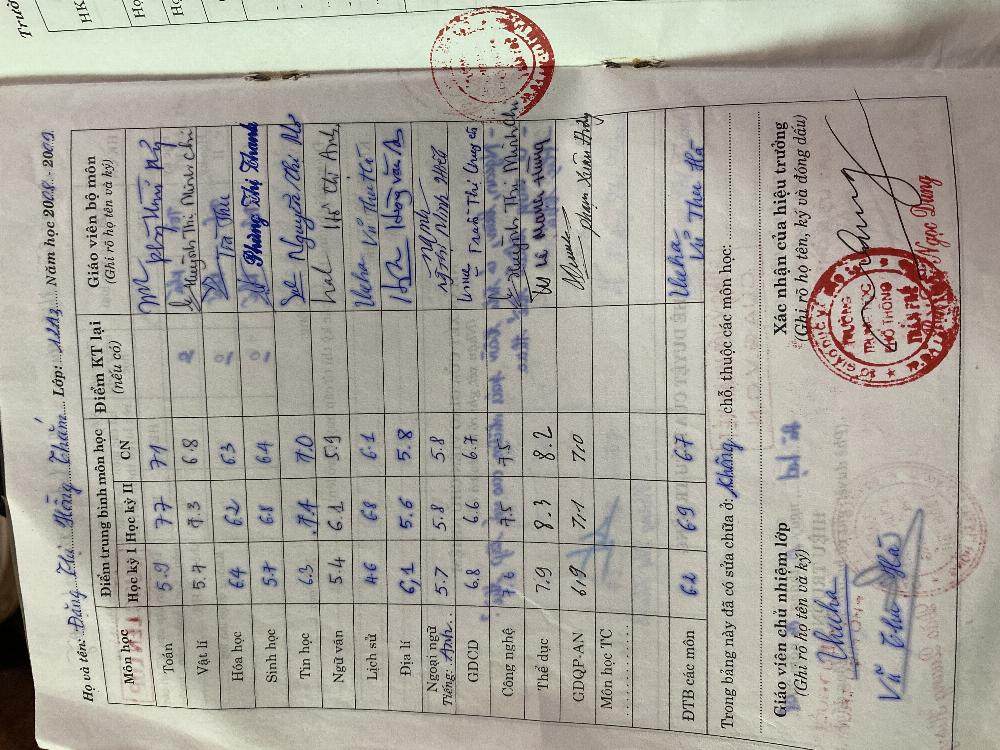 Họ và tên: Đặng Thị Hồng Thắm Lớp: Năm học 2008 - 2009
Môn học Điểm trung bình môn học Điểm KT lại (nếu có) Giáo viên bộ môn
Học kỳ I Học kỳ II CN (Ghi rõ họ tên và ký)
Toán 5.9 7.7 7.1
Vật lí 5.7 7.3 6.8 Huỳnh Thị Minh Chi
Hóa học 6.4 6.2 6.3 Trà Thu
Sinh học 5.7 6.8 6.4 Phùng Thị Thanh
Tin học 6.3 7.4 7.0 Nguyễn Thị
Ngữ văn 5.4 6.1 5.9 Hồ Thị Anh
Lịch sử 4.6 6.8 6.1 Thuha Vũ Thu Hà
Địa lí 6,1 5.6 5.8 Hoàng Văn
Ngoại ngữ 5.7 5.8 5.8
Tiếng: Anh
GDCD 6.8 6.6 6.7 Trần Thị
Công nghệ 7.6 7.5 7.5 Huỳnh Thị Minh Chi
Thể dục 7.9 8.3 8.2 Lê Mạnh Hùng
GDQP-AN 6.9 7.1 7.0 Phạm Xuân Thủy
Môn học TC
ĐTB các môn 6.2 6.9 6.7 Thuha Vũ Thu Hà
Trong bảng này đã có sửa chữa ở: không chỗ, thuộc các môn học:
Giáo viên chủ nhiệm lớp Xác nhận của hiệu trưởng
(Ghi rõ họ tên và ký) (Ghi rõ họ tên, ký và đóng dấu)
Thuha
Vũ Thu Hà
SỞ GIÁO DỤC
TRƯỜNG
TRUNG HỌC
PHỔ THÔNG
Ngọc Dung
Trườ